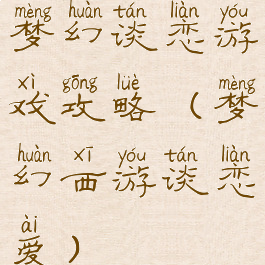 mèng huàn tán liàn yóu
梦幻谈恋游
xì gōng lüè mèng
戏攻略（梦
huàn xī yóu tán liàn
幻西游谈恋
ài
爱）